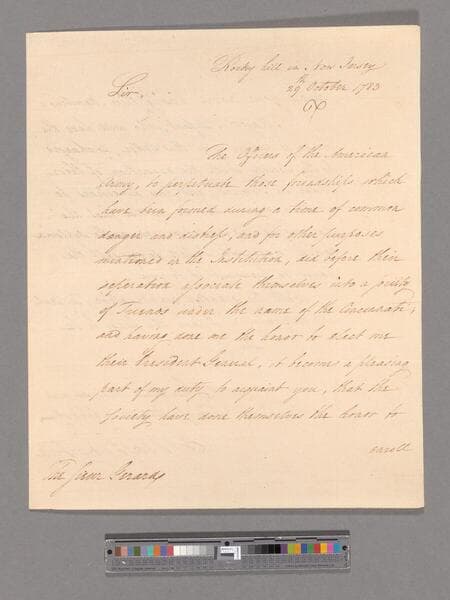 Rocky hill in New Jersey
29th October 1783
Sir,
The Officers of the American
Army, to perpetuate those friendships which
have been formed during a time of common
danger and distress, and for other purposes
mentioned in the Institution, did before their
seperation associate themselves into a society
of Friends under the name of the Cincinnati;
and having done me the honor to elect me
their President General, it becomes a pleasing
part of my duty to acquaint you, that the
Society have done themselves the honor to
enroll
The Sieur Gerard